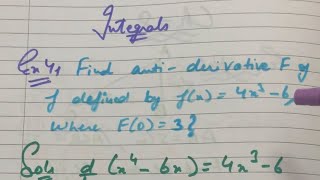 Integrals
Ex 4, Find anti-derivative F of
f defined by f(x) = 4x³-6,
where F(0) = 3}
Soln d (x⁴-6x) = 4x³-6